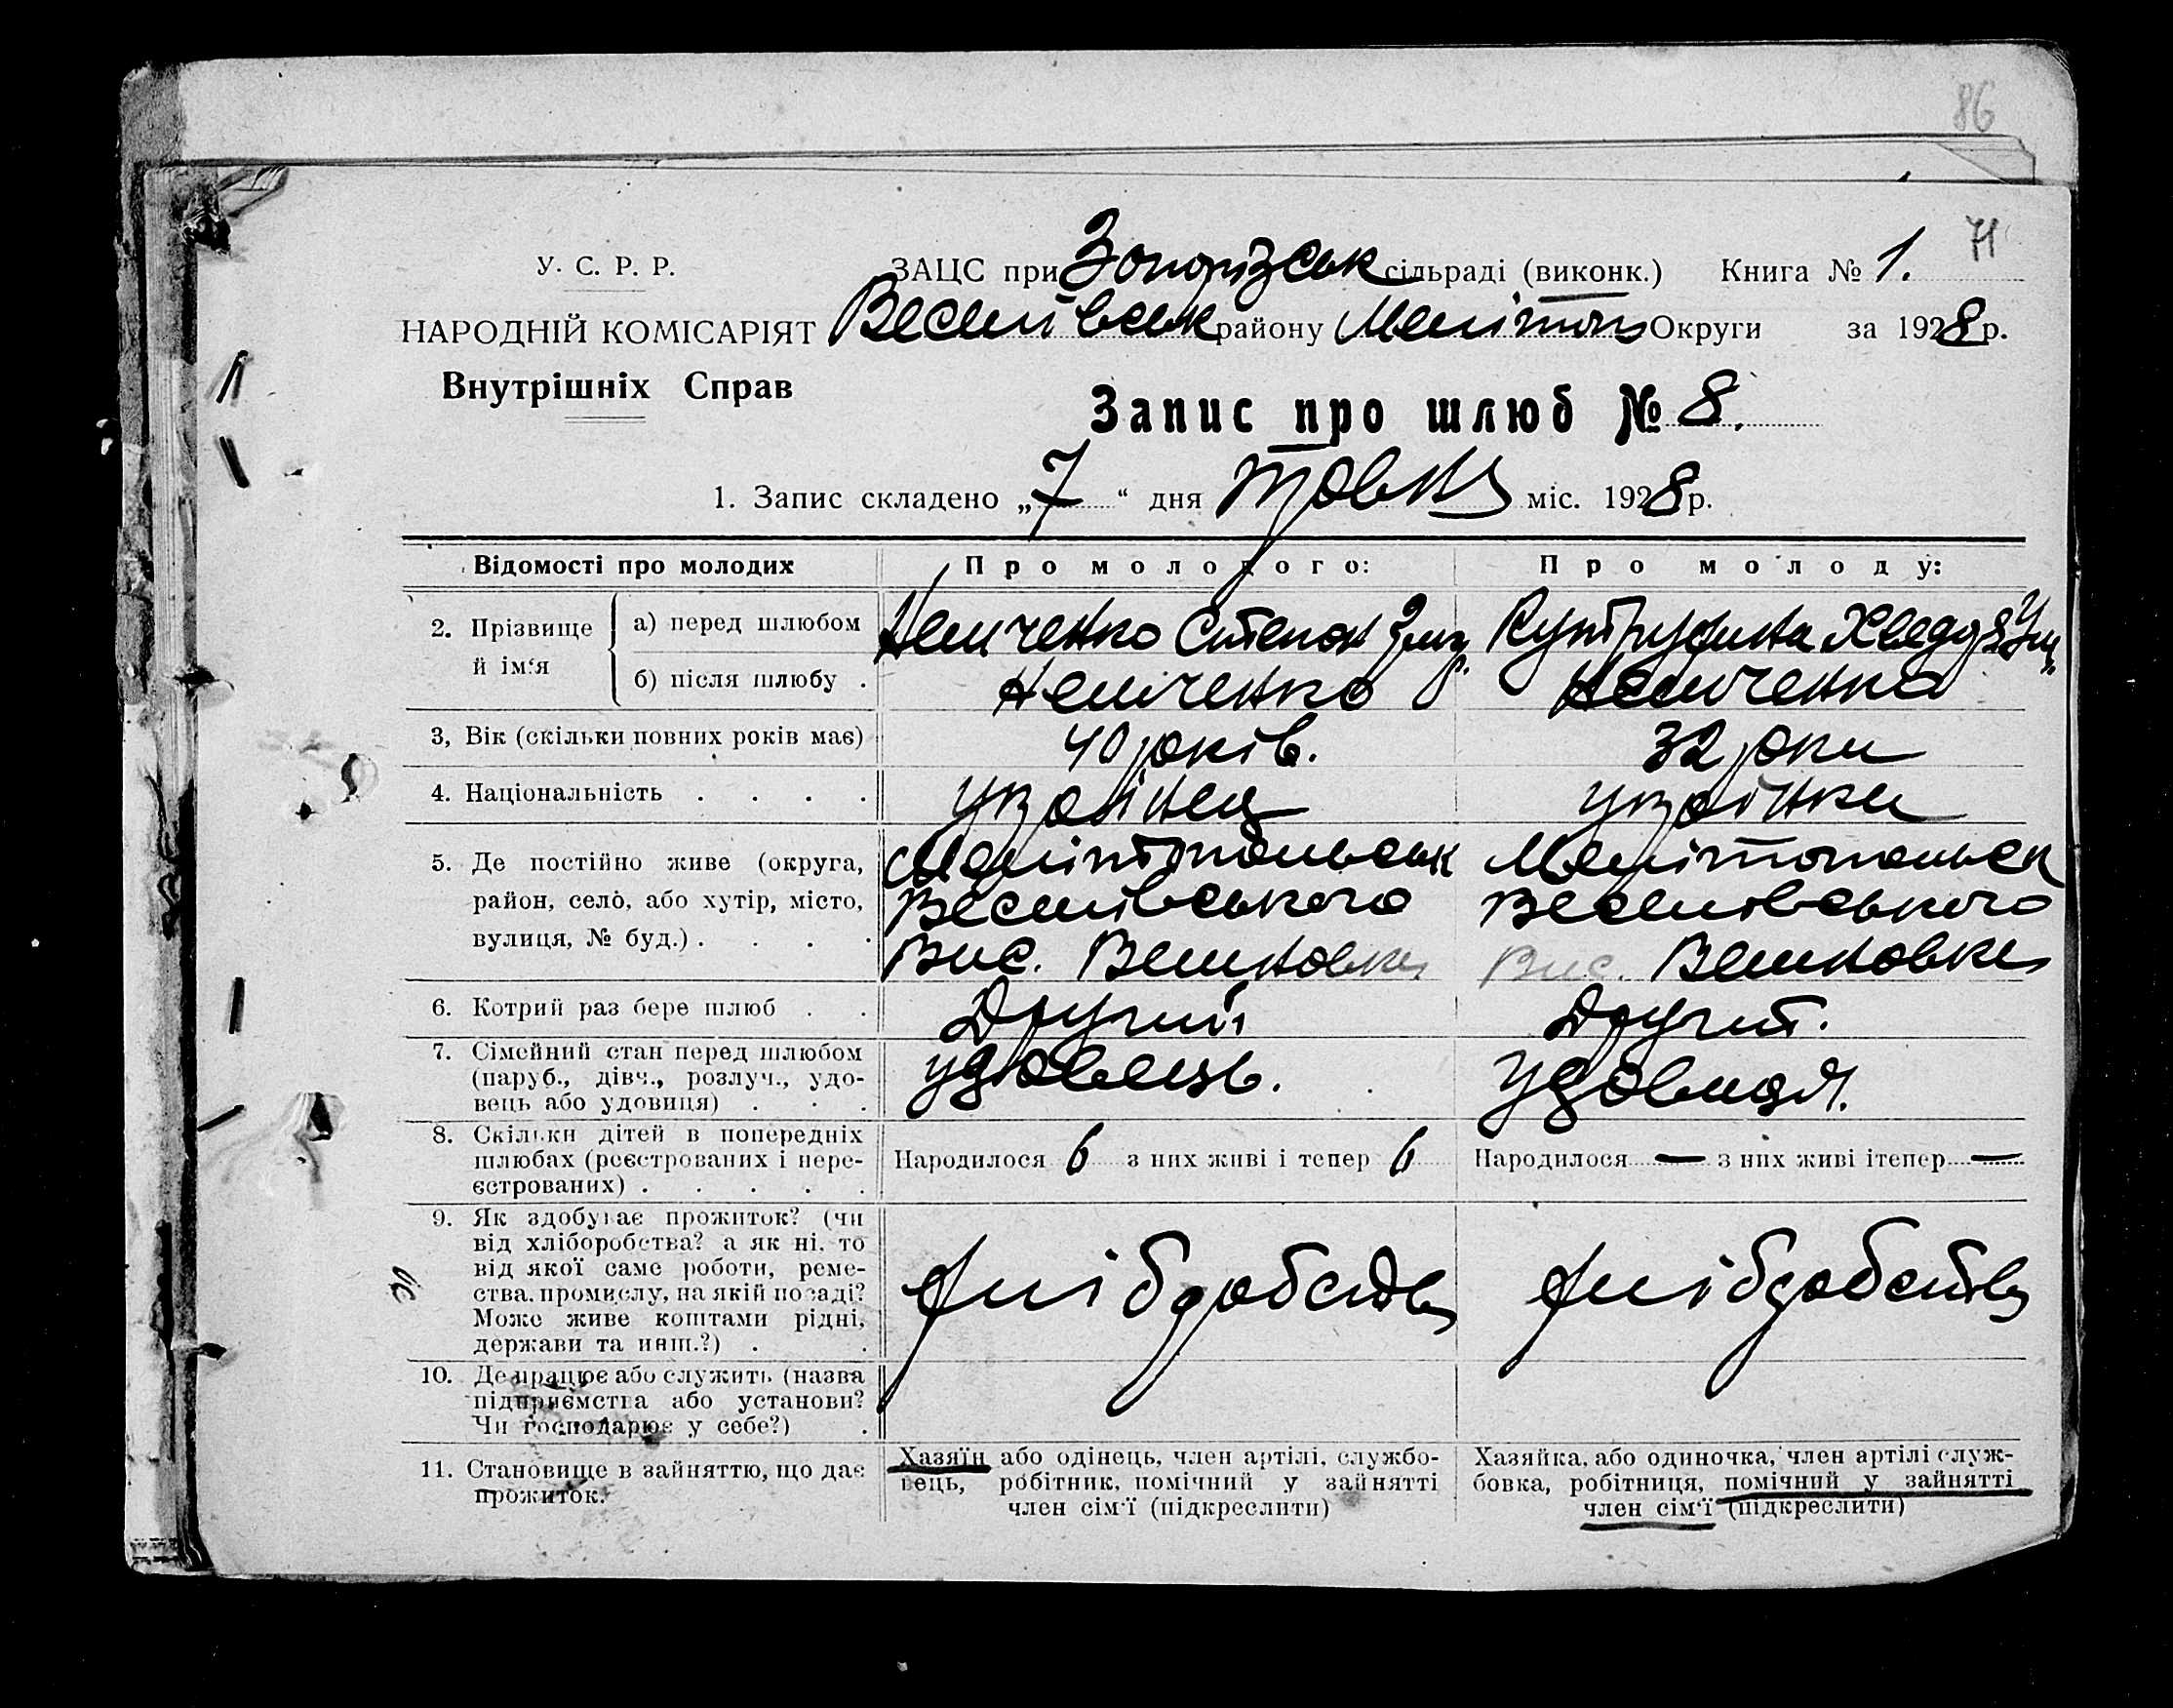 86
71
У. С. Р. Р.
ЗАЦС при Запорізськ сільраді (виконк.) Книга № 1.
НАРОДНІЙ КОМІСАРІЯТ Веселівськ району Мелітоп Округи за 1928 р.
Внутрішніх Справ
Запис про шлюб № 8.
1. Запис складено „7“ дня травня міс. 1928 р.
Відомості про молодих Про молодого: Про молоду:
2. Прізвище й ім'я
а) перед шлюбом Немченко Степан Хведора
б) після шлюбу . Немченко Немченко
3, Вік (скільки повних років має) 40 років. 32 роки
4. Національність . . . . українец українка
5. Де постійно живе (округа, Мелітопольськ Мелітопольськ
район, село, або хутір, місто, Веселівського Веселівського
вулиця, № буд.) . . . . Вис. Вис.
6. Котрий раз бере шлюб . . Другий Другий.
7. Сімейний стан перед шлюбом
(паруб., дівч., розлуч., удо- удовець. удовиця.
вець або удовиця) . . .
8. Скільки дітей в попередніх
шлюбах (реєстрованих і нере- Народилося 6 з них живі і тепер 6 Народилося — з них живі ітепер —
єстрованих) . . . . .
9. Як здобуває прожиток? (чи
від хліборобства? а як ні, то
від якої саме роботи, реме-
ства, промислу, на якій посаді? хліборобства хліборобства
Може живе коштами рідні,
держави та инш.?) . .
10. Де працює або служить (назва
підприємства або установи?
Чи господарює у себе?) .
11. Становище в зайняттю, що дає
прожиток.
Хазяїн або одінець, член артілі, службо-
вець, робітник, помічний у зайнятті
член сім'ї (підкреслити)
Хазяйка, або одиночка, член артілі служ-
бовка, робітниця, помічний у зайнятті
член сім'ї (підкреслити)